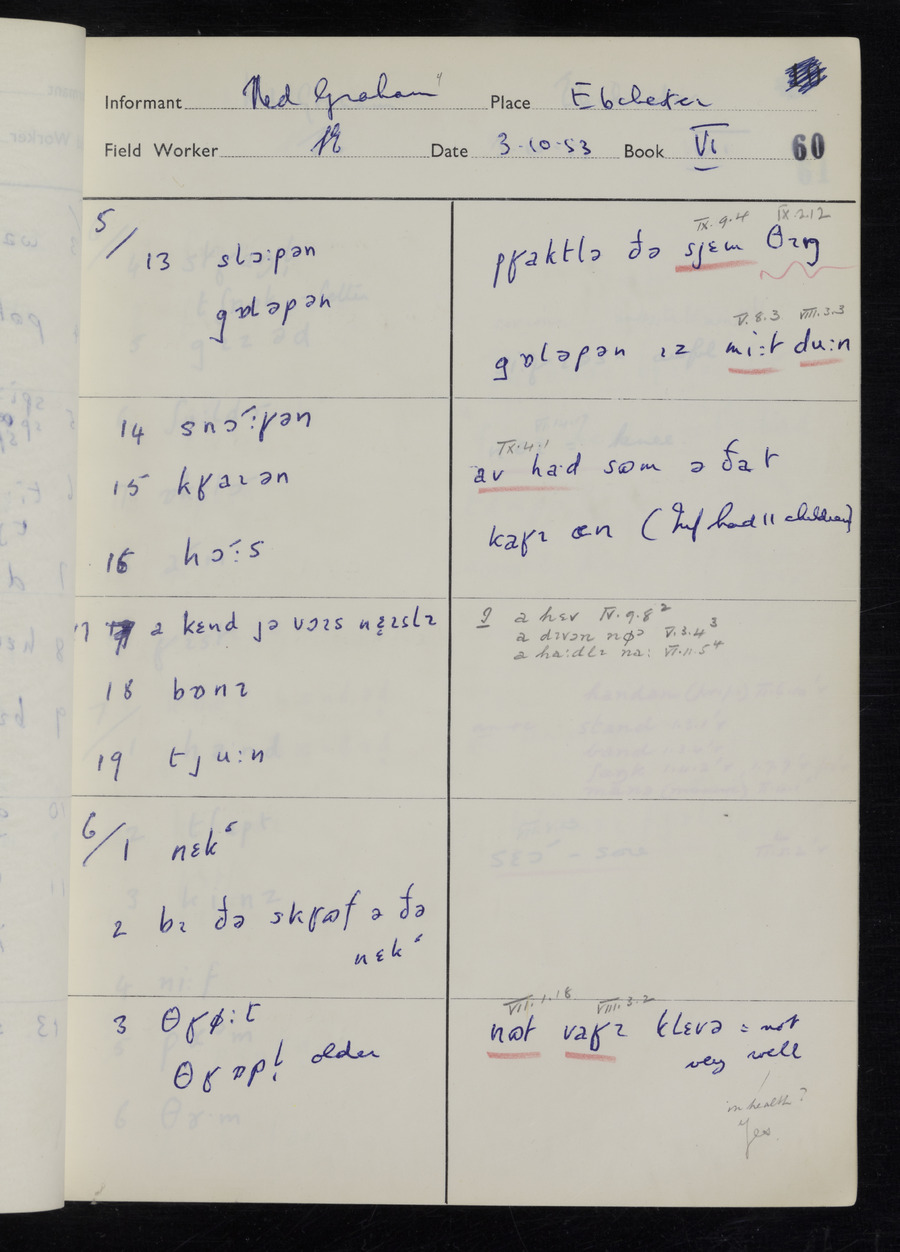 Informant Ned Graham Place Ebchester
Field Worker Date 3-10-53 Book VI 60
5/ 13 slɔːpən
gɒləpən
14 snɔ́ːʁən
15 kʁaɪən
16 hɔ́ːs
17 a kɛnd jə vɔɪs
18 bɒnɪ
19 tjuːn
6/ 1 nɛkˢ
2 bɪ ðə skʁɒf ə ðə
nɛkˢ
3 θʁøːt
θʁɒpl̩ older
IX.9.4 IX.2.12
pʁaktlə ðə sjɛm θɪŋ
V.8.3 VIII.3.3
gɒləpən ɪz miːt duːn
IX.4.1
av had sɒm ə ðat
kaʁɪ ɒn (Inf had 11 children)
a hɛv IV.9.8²
a dɪvən nøə V.3.4³
a haːdlɪ naː VI.11.5⁴
VII.1.18 VIII.3.2
nɒt vaʁɪ klɛvə = not
very well
in health?
Yes.